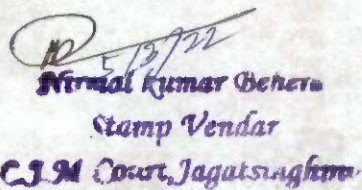 5/3/22
Nirmal Kumar Behera
Stamp Vendar
C.J.M Court, Jagatsinghpur